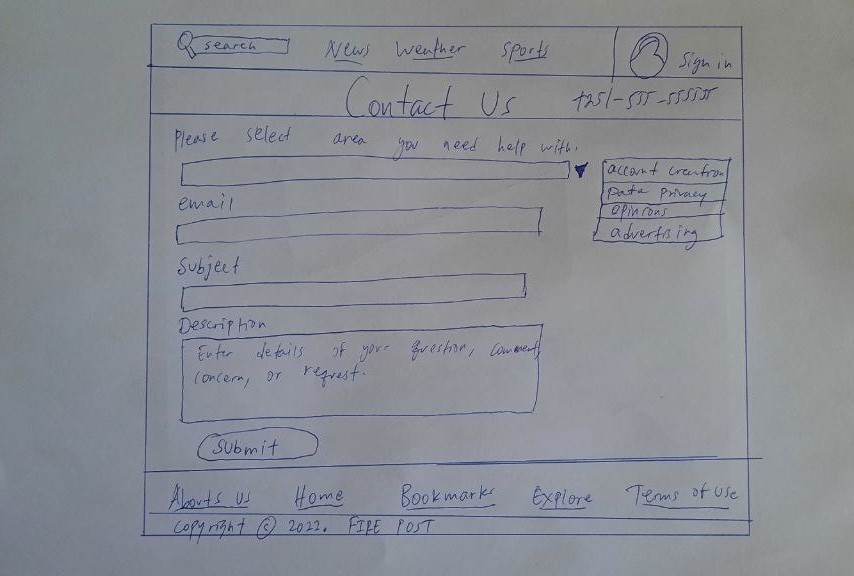 search News Weather Sports Sign in
Contact Us +251-555-555555
Please select area you need help with.
account creation
Data privacy
opinions
advertising
email
Subject
Description
Enter details of your question, comment,
concern, or request.
Submit
Abouts us Home Bookmarks Explore Terms of Use
Copyright © 2022. FIRE POST